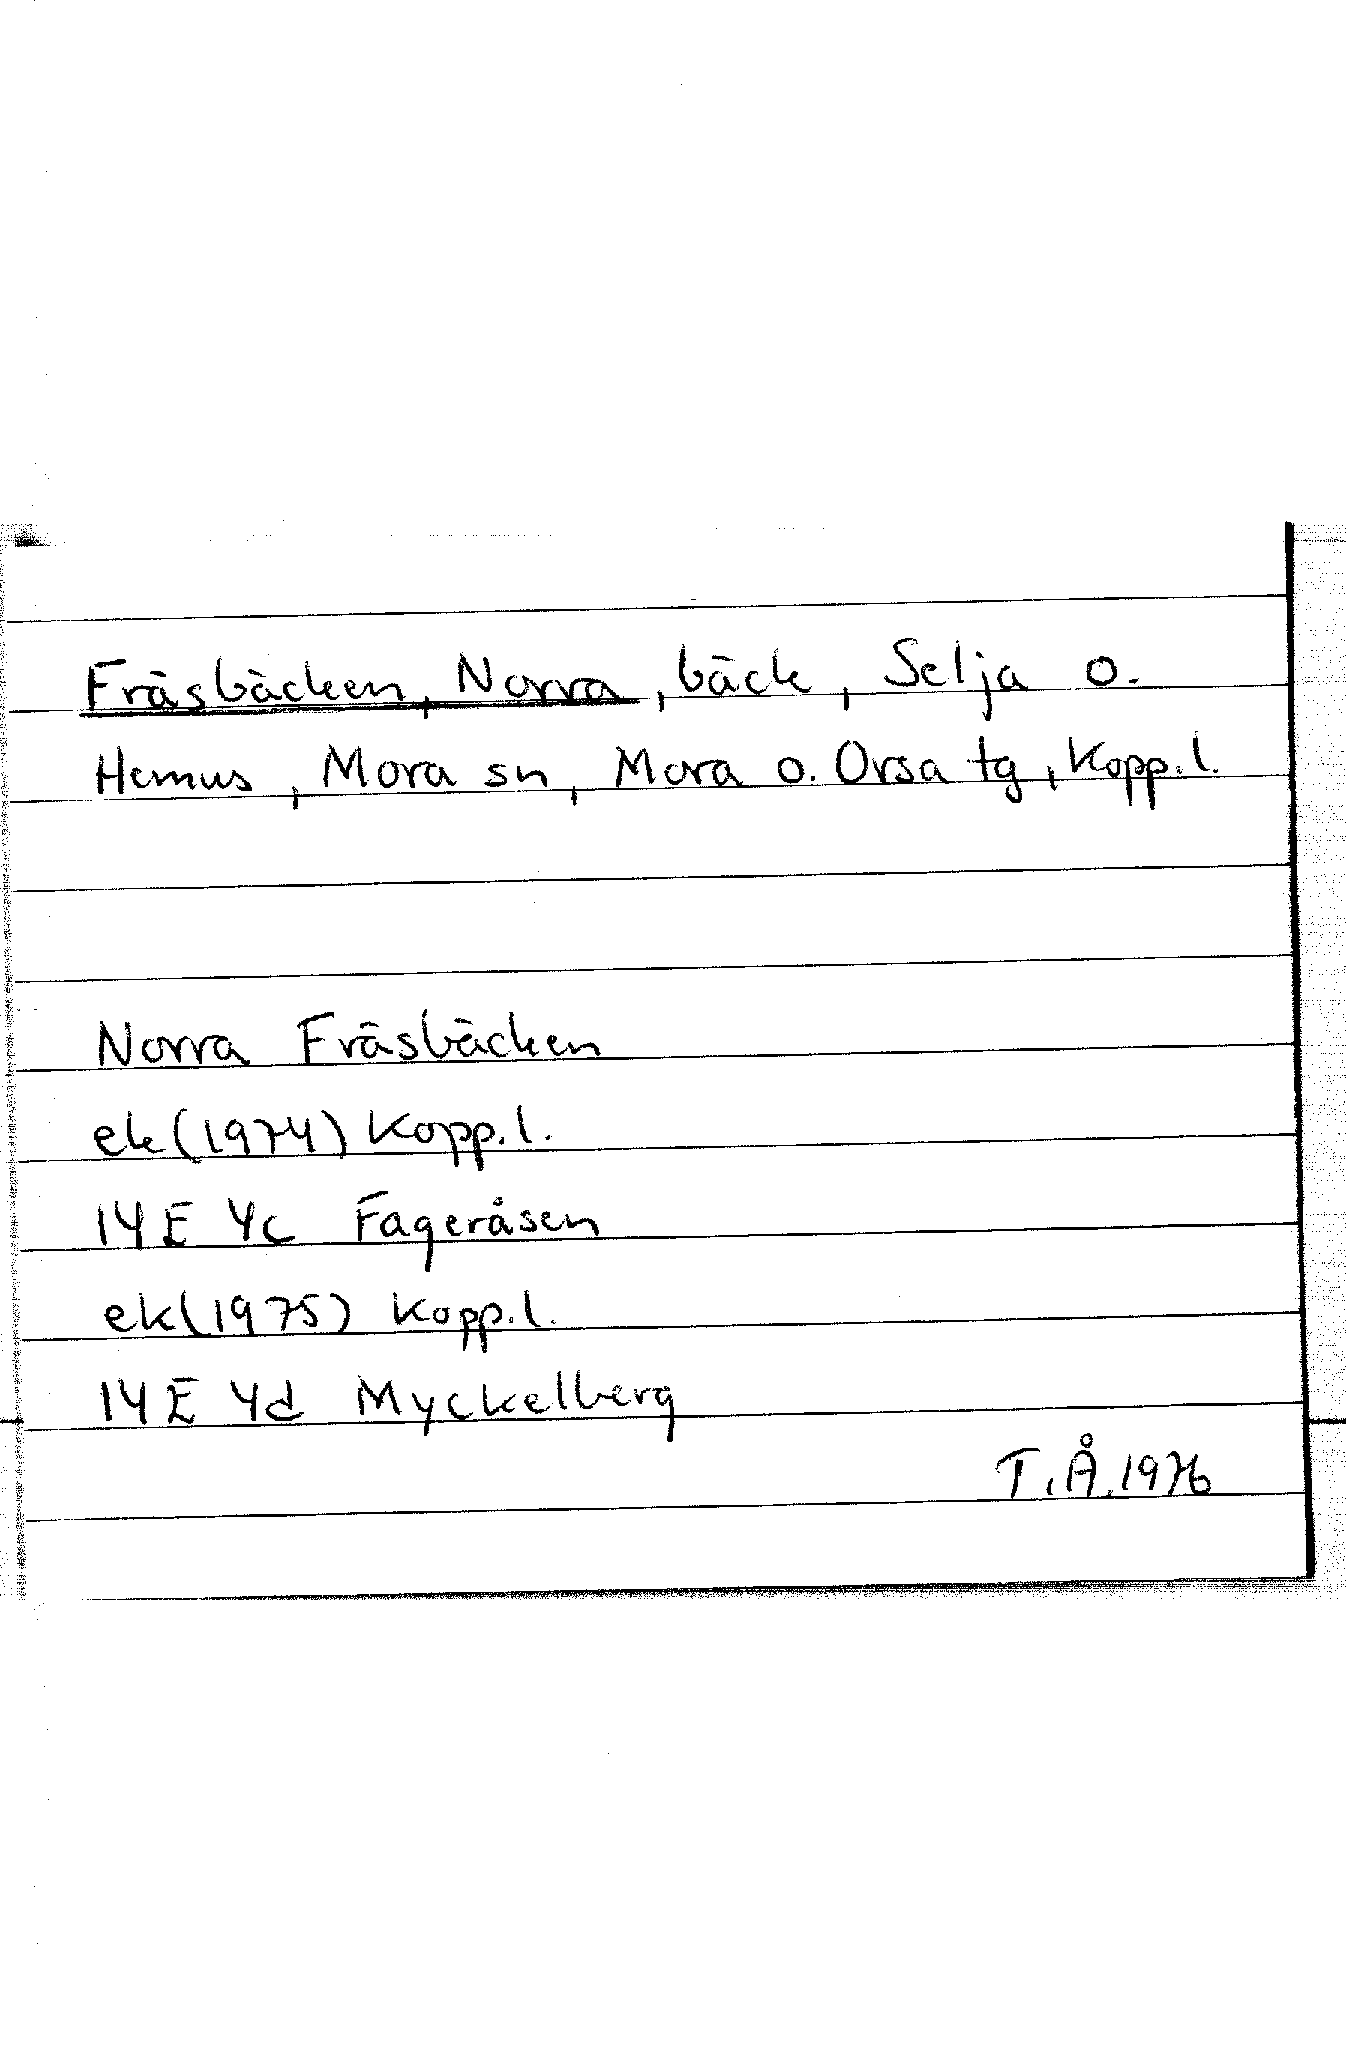 Fräsbäcken, Norra, bäck, Selja o.
Hemus, Mora sn, Mora o. Orsa tg, Kopp.l.
Norra Fräsbäcken
ek(1974) Kopp.l.
14E 4c Fageråsen
ek(1975) Kopp.l.
14E 4d Myckelberg
T.Å.1976